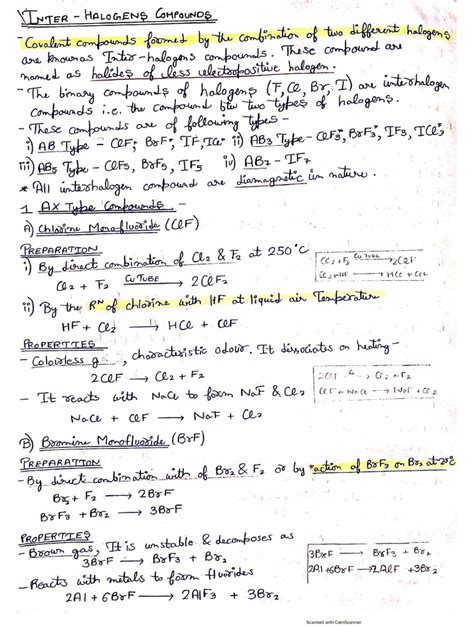 INTER - HALOGENS COMPOUNDS
- Covalent compounds formed by the combination of two different halogens
are known as Inter-halogens compounds. These compound are
named as halides of less electropositive halogen.
- The binary compounds of halogens (F, Cl, Br, I) are interhalogen
compounds i.e. the compound btw two types of halogens.
- These compounds are of following types -
i) AB Type - ClF, BrF, IF, ICl ii) AB3 Type - ClF3, BrF3, IF3, ICl3
iii) AB5 Type - ClF5, BrF5, IF5 iv) AB7 - IF7
* All interhalogen compound are diamagnetic in nature.
1 AX Type Compounds -
A) Chlorine Monofluoride (ClF)
PREPARATION
i) By direct combination of Cl2 & F2 at 250°C
Cl2 + F2 CU TUBE → 2ClF
Cl2 + F2 CU TUBE → 2ClF
Cl2 + HF → HCl + ClF
ii) By the RN of chlorine with HF at liquid air Temperature
HF + Cl2 → HCl + ClF
PROPERTIES
- Colourless g , characteristic odour. It dissociates on heating -
2ClF → Cl2 + F2
2ClF → Cl2 + F2
ClF + NaCl → NaF + Cl2
- It reacts with NaCl to form NaF & Cl2
NaCl + ClF → NaF + Cl2
B) Bromine Monofluoride (BrF)
PREPARATION
- By direct combination with of Br2 & F2 or by action of BrF3 on Br2 at
Br2 + F2 → 2BrF
BrF3 + Br2 → 3BrF
PROPERTIES
- Brown gas, It is unstable & decomposes as
3BrF → BrF3 + Br2
3BrF → BrF3 + Br2
2Al + 6BrF → 2AlF + 3Br2
- Reacts with metals to form fluorides
2Al + 6BrF → 2AlF3 + 3Br2
Scanned with CamScanner